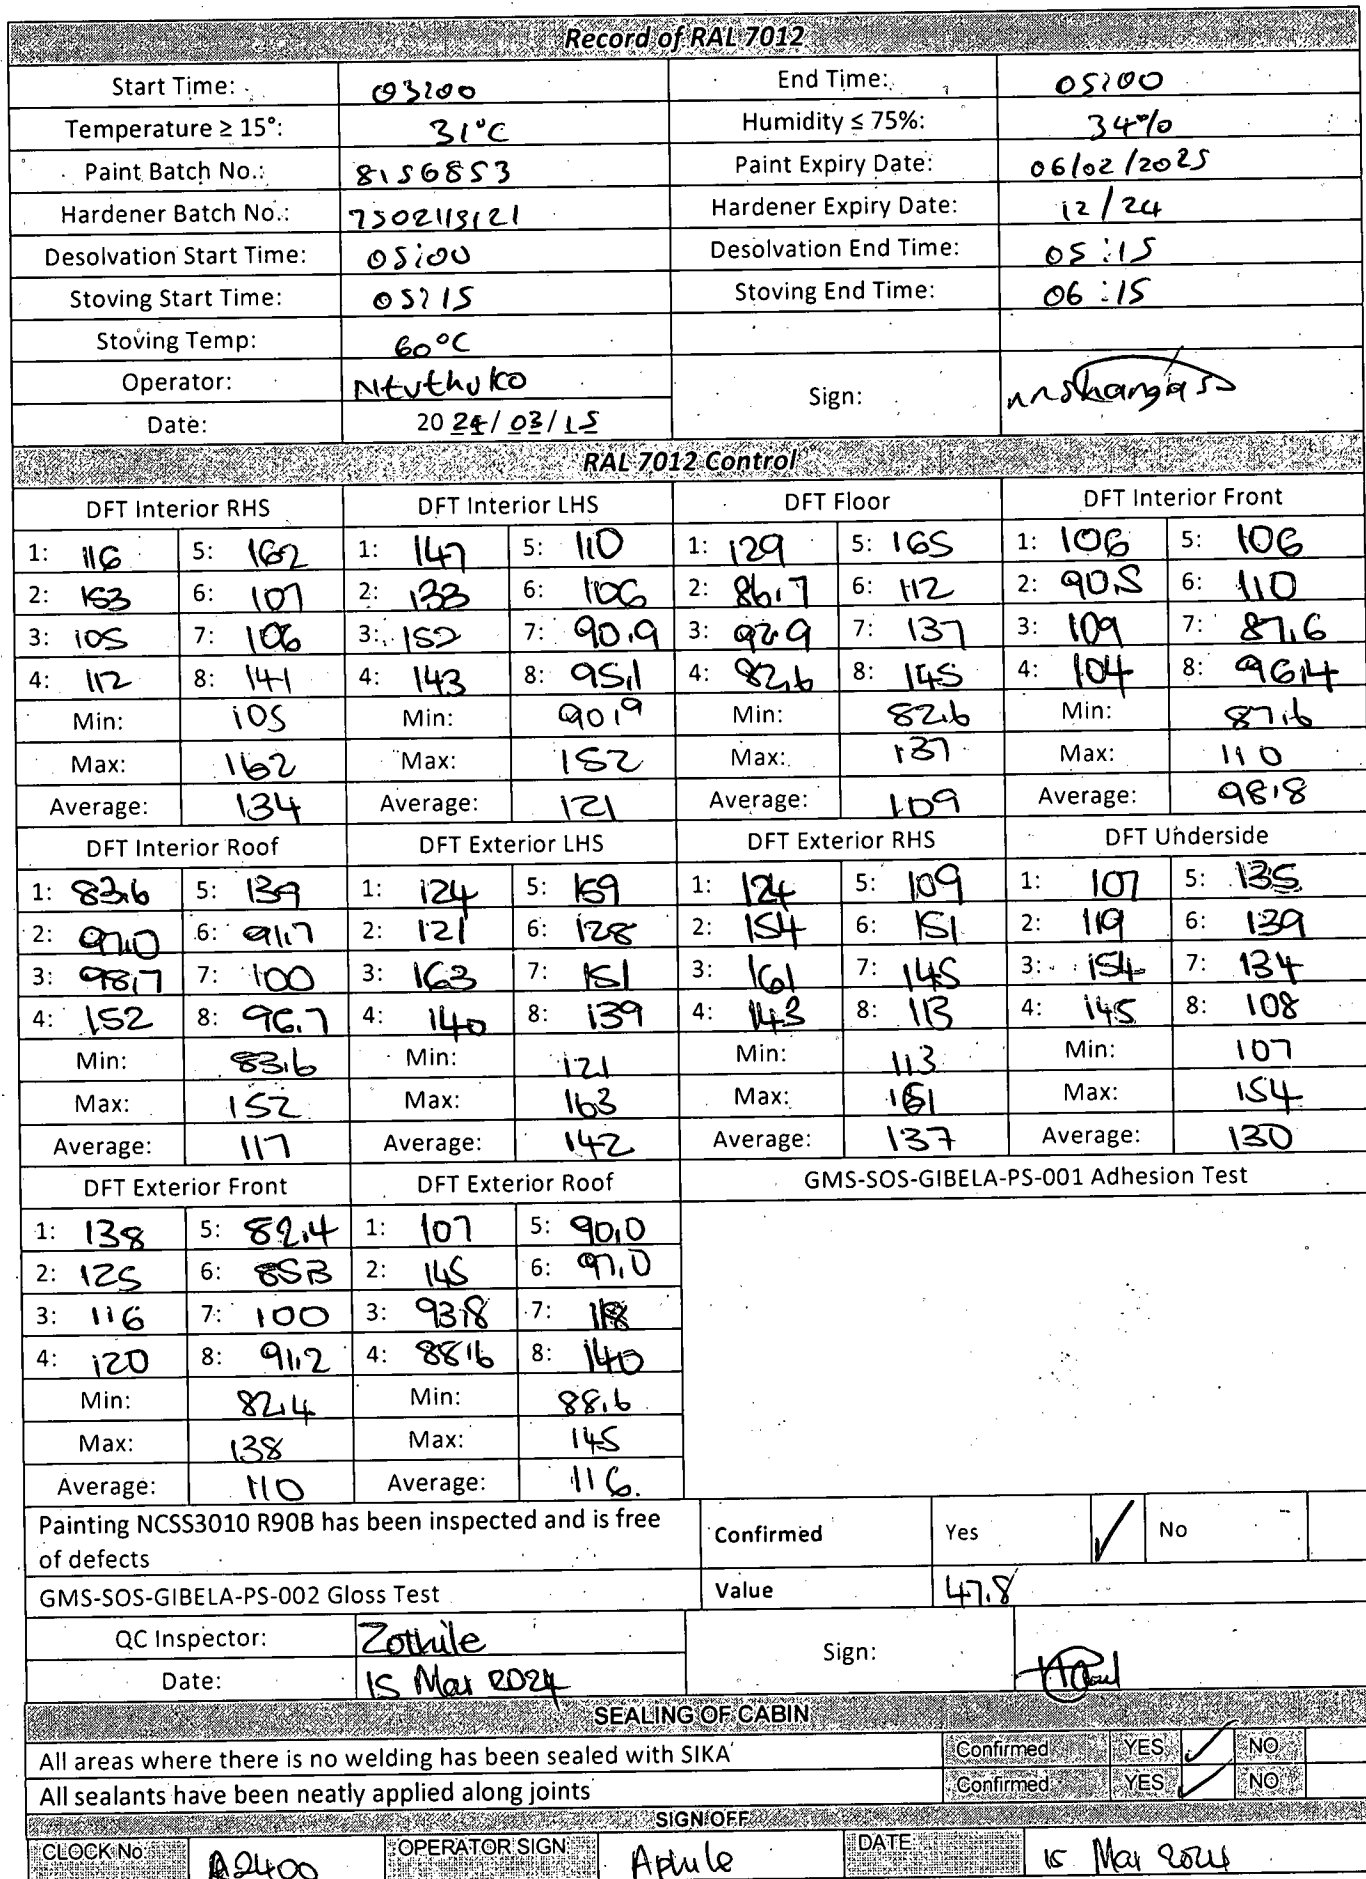 Record of RAL 7012
Start Time: 03:00 End Time: 05:00
Temperature ≥ 15°: 31°C Humidity ≤ 75%: 34%
Paint Batch No.: 8156853 Paint Expiry Date: 06/02/2025
Hardener Batch No.: 7302119121 Hardener Expiry Date: 12/24
Desolvation Start Time: 05:00 Desolvation End Time: 05:15
Stoving Start Time: 05:15 Stoving End Time: 06:15
Stoving Temp: 60°C
Operator: Ntuthuko Sign:
Date: 2024/03/15
RAL 7012 Control
DFT Interior RHS DFT Interior LHS DFT Floor DFT Interior Front
1: 116 5: 162 1: 147 5: 110 1: 129 5: 165 1: 106 5: 106
2: 153 6: 107 2: 133 6: 106 2: 86,7 6: 112 2: 90,5 6: 110
3: 105 7: 106 3: 152 7: 90,9 3: 92,9 7: 137 3: 109 7: 87,6
4: 112 8: 141 4: 143 8: 95,1 4: 82,6 8: 145 4: 104 8: 96,4
Min: 105 Min: 90,9 Min: 82,6 Min: 87,6
Max: 162 Max: 152 Max: 137 Max: 110
Average: 134 Average: 121 Average: 109 Average: 98,8
DFT Interior Roof DFT Exterior LHS DFT Exterior RHS DFT Underside
1: 83,6 5: 139 1: 124 5: 159 1: 124 5: 109 1: 107 5: 135
2: 97,0 6: 91,7 2: 121 6: 128 2: 154 6: 151 2: 119 6: 139
3: 98,7 7: 100 3: 163 7: 151 3: 161 7: 145 3: 154 7: 134
4: 152 8: 96,7 4: 140 8: 139 4: 143 8: 113 4: 145 8: 108
Min: 83,6 Min: 121 Min: 113 Min: 107
Max: 152 Max: 163 Max: 161 Max: 154
Average: 117 Average: 142 Average: 137 Average: 130
DFT Exterior Front DFT Exterior Roof GMS-SOS-GIBELA-PS-001 Adhesion Test
1: 138 5: 82,4 1: 107 5: 90,0
2: 125 6: 85,3 2: 145 6: 97,0
3: 116 7: 100 3: 93,8 7: 118
4: 120 8: 91,2 4: 88,6 8: 140
Min: 82,4 Min: 88,6
Max: 138 Max: 145
Average: 110 Average: 116.
Painting NCSS3010 R90B has been inspected and is free
of defects Confirmed Yes ✓ No
GMS-SOS-GIBELA-PS-002 Gloss Test Value 47.8
QC Inspector: Zothile Sign:
Date: 15 Mar 2024
SEALING OF CABIN
All areas where there is no welding has been sealed with SIKA Confirmed YES ✓ NO
All sealants have been neatly applied along joints Confirmed YES ✓ NO
SIGN OFF
CLOCK No: A2400 OPERATOR SIGN: Aphile DATE: 15 Mar 2024